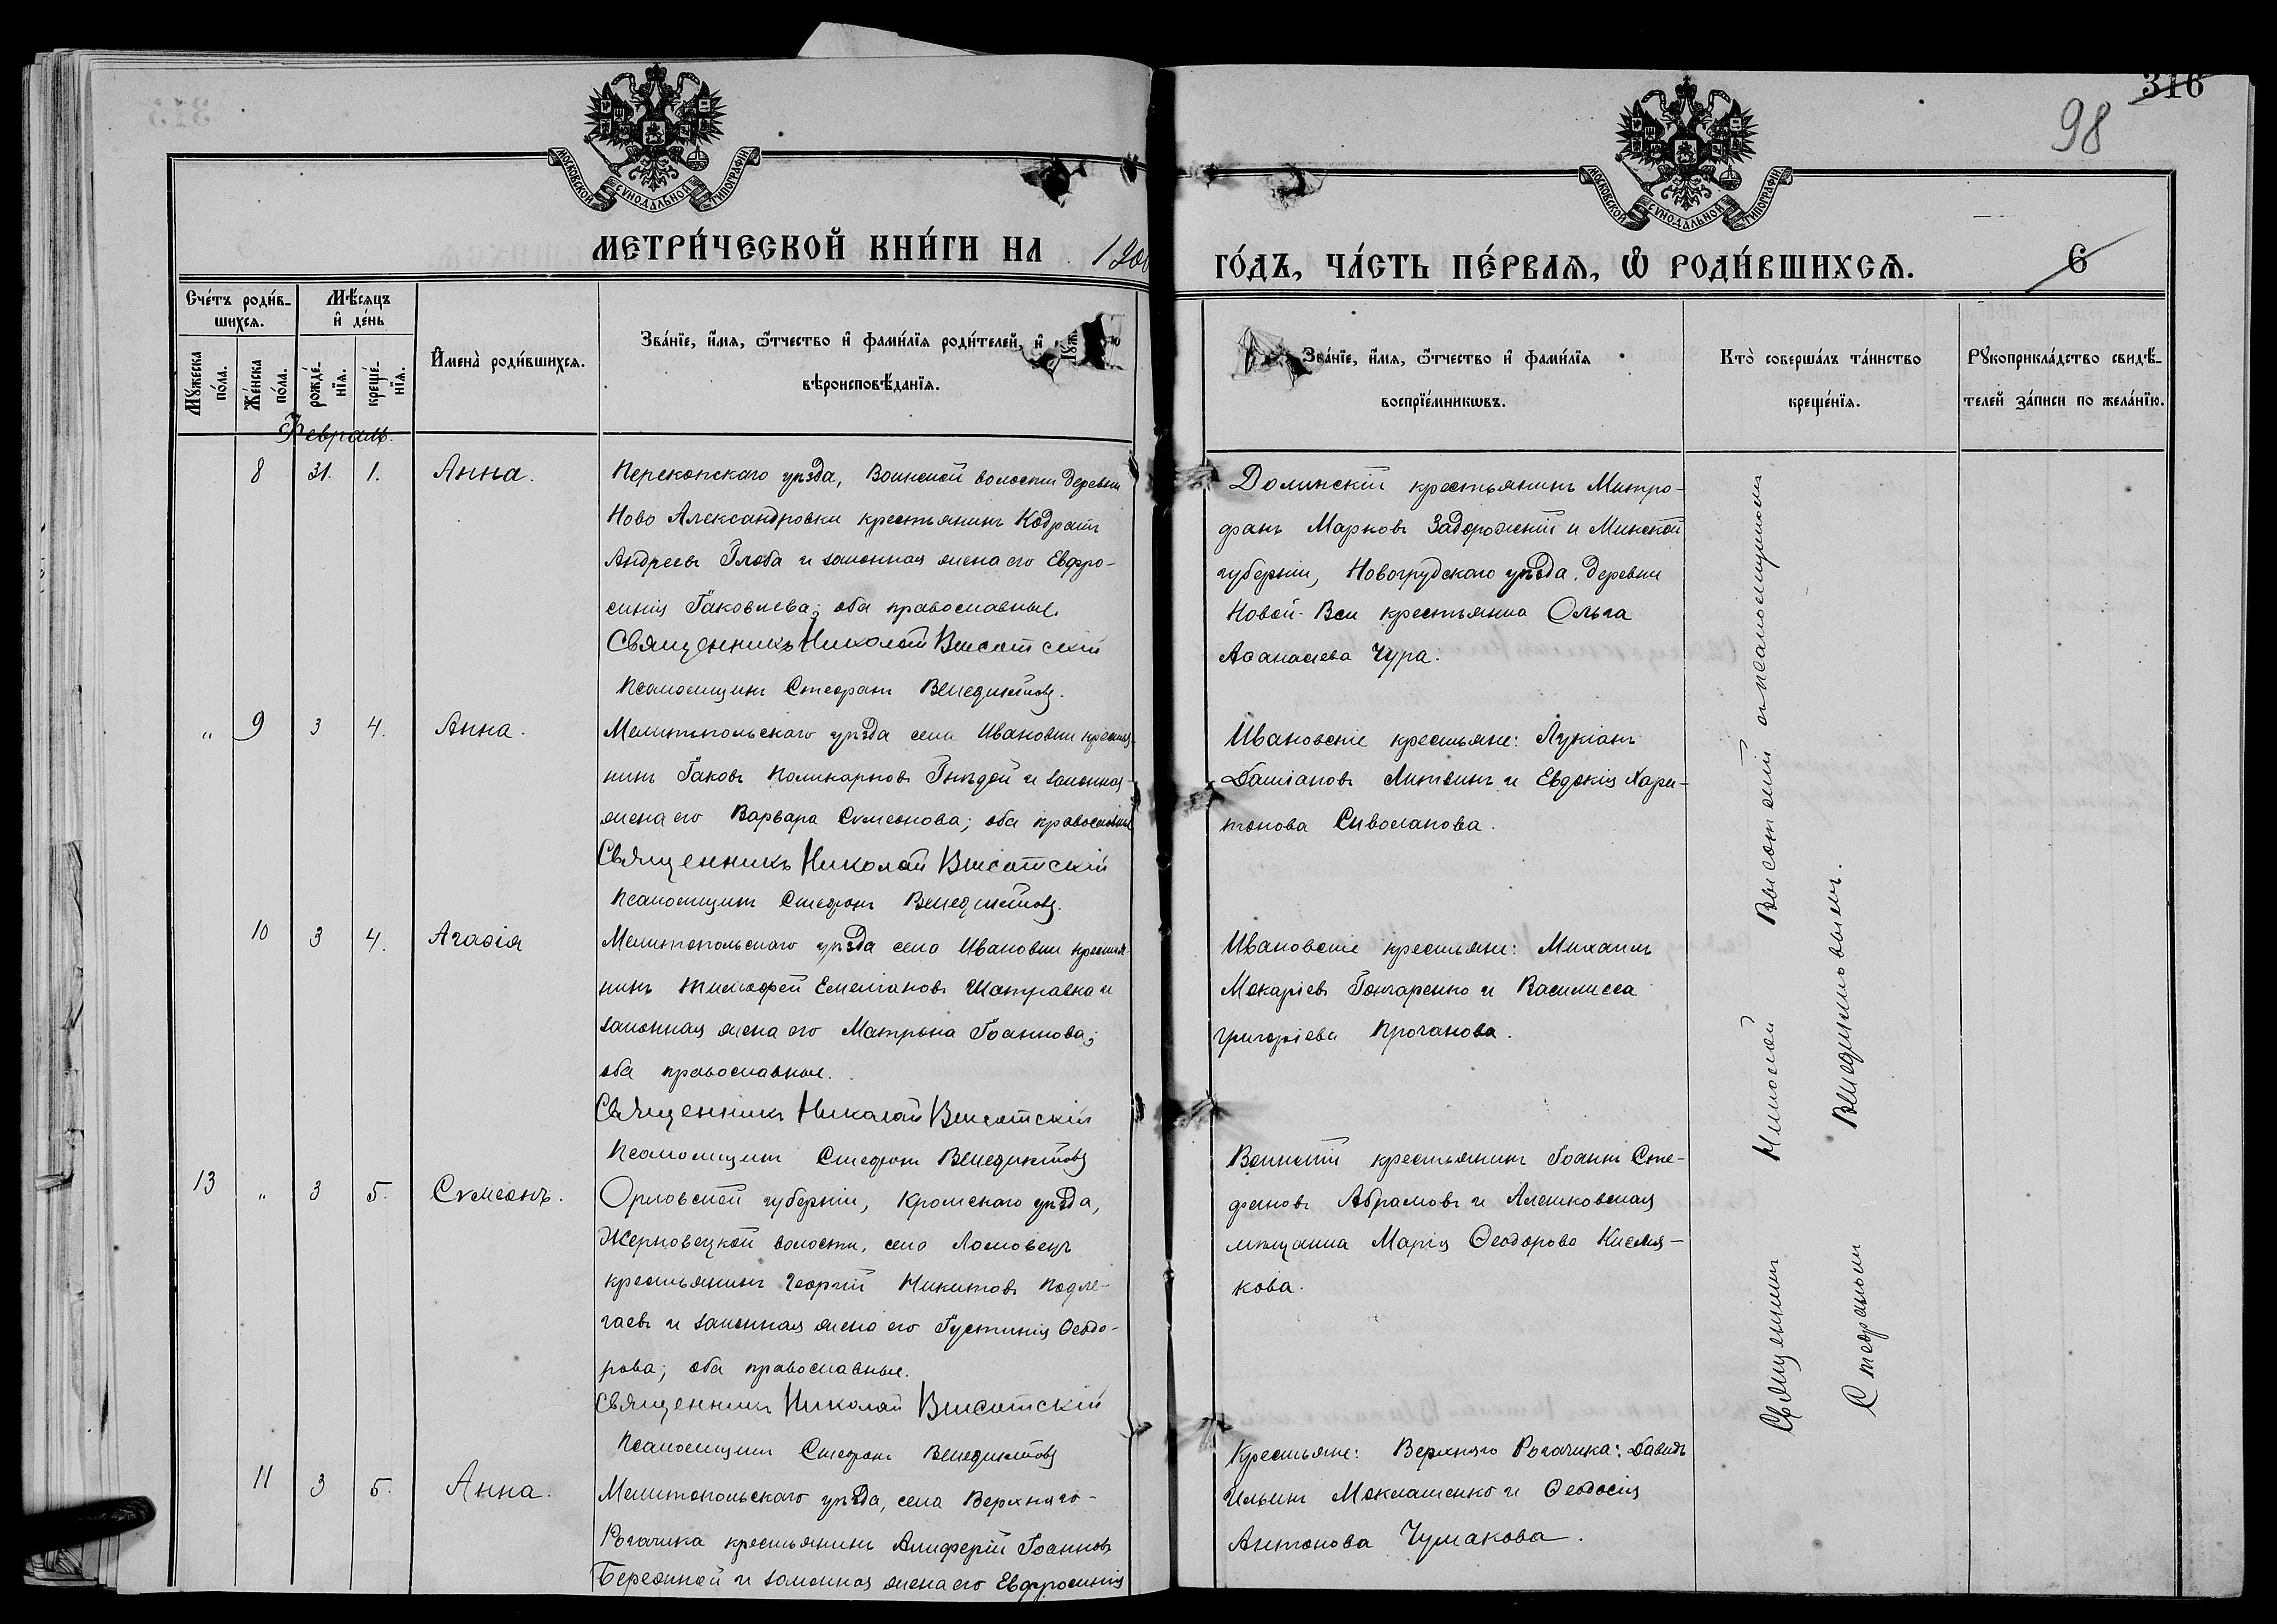 316
98
МОСКОВСКОЙ СѴНОДАЛЬНОЙ ТИПОГРАФІИ
МОСКОВСКОЙ СѴНОДАЛЬНОЙ ТИПОГРАФІИ
МЕТРИ́ЧЕСКОЙ КНИ́ГИ НА
ГО́ДЪ, ЧА́СТЬ ПЕ́РВАЯ, Ѡ РОДИ́ВШИХСЯ.
6
Сче́тъ роди́в-
шихся.
Мѣ́сяцъ
и҆ де́нь
Мꙋжеска по́ла.
Же́нска по́ла.
рожде́нїя.
креще́нїя.
И҆мена̀ роди́вшихся.
Зва́нїе, и҆́мя, ѻ҆́тчество и҆ фами́лїя роди́телей, и҆
вѣроисповѣ́данїя.
Зва́нїе, и҆́мя, ѻ҆́тчество и҆ фами́лїя
воспрїе́мникѡвъ.
Кто̀ соверша́лъ та́инство
креще́нїя.
Рꙋкоприкла́дство свидѣ́-
телей за́писи по жела́нїю.
Февраль.
8 31. 1. Анна.
Перекопскаго уѣзда, Воинской волости деревни
Ново Александровки крестьянинъ Кодратъ
Андреевъ Глоба и законная жена его Евфро-
синія Іаковлева; оба православные.
Священникъ Николай Высотскій
Псаломщикъ Стефанъ Венедиктовъ.
Долинскій крестьянинъ Митро-
фанъ Марковъ Задорожній и Минской
губерніи, Новогрудскаго уѣзда, деревни
Новой-Вси крестьянка Ольга
Аѳанасіева Чура.
" 9 3 4. Анна.
Мелитопольскаго уѣзда села Ивановки крестья-
нинъ Іаковъ Поликарповъ Гнѣдой и законная
жена его Варвара Сѵмеонова; оба православные
Священникъ Николай Высотскій
Псаломщикъ Стефанъ Венедиктовъ.
Ивановскіе крестьяне: Лукіанъ
Даміановъ Литвинъ и Евдокія Хари-
тонова Сиволапова.
10 3 4. Агаѳія
Мелитопольскаго уѣзда села Ивановки крестья-
нинъ Тимоѳей Емеліановъ Шатравка и
законная жена его Матрона Іоаннова;
оба православные.
Священникъ Николай Высотскій
Псаломщикъ Стефанъ Венедиктовъ
Ивановскіе крестьяне: Михаилъ
Макаріевъ Гончаренко и Василисса
Григоріева Проганова.
13 " 3 5. Сѵмеонъ.
Орловской губерніи, Кромскаго уѣзда,
Жерновецкой волости, села Ломовецъ
крестьянинъ Георгій Никитовъ Подле-
гаевъ и законная жена его Іустинія Ѳеодо-
рова; оба православные.
Священникъ Николай Высотскій
Псаломщикъ Стефанъ Венедиктовъ
Воинскій крестьянинъ Іоаннъ Сте-
фановъ Абрамовъ и Алешковская
мѣщанка Марія Ѳеодорова Кисля-
кова.
11 3 5. Анна.
Мелитопольскаго уѣзда, села Верхняго-
Рогачика крестьянинъ Алиферій Іоанновъ
законная жена его Евфросинія
Крестьяне: Верхняго Рогачика: Давидъ
Ильинъ Моклашенко и Ѳеодосія
Антонова Чумакова.
Священникъ Николай Высотскій съ псаломщикомъ
Стефаномъ Венедиктовымъ.